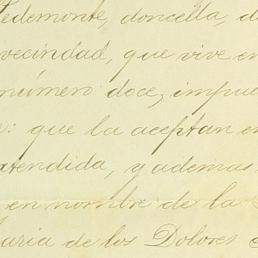 Pedemonte, doncella, d
vecindad, que vive en
número doce, impue
: que la aceptan en
tendida, y ademas
en nombre de la
aria de los Dolores